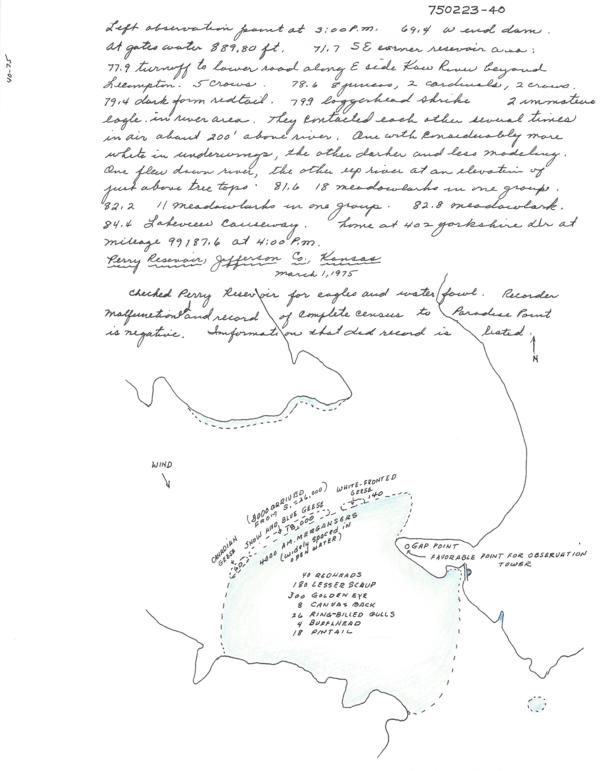 750223-40
40-75
Left observation point at 3:00 P.M. 69.4 W end dam.
At gates water 889.80 ft. 71.7 S E corner reservoir area:
77.9 turnoff to lower road along E side Kaw River beyond
Lecompton. 5 crows. 78.6 8 juncos, 2 cardinals, 2 crows.
79.4 dark form redtail. 79.9 loggerhead shrike 2 immature
eagle in river area. They contacted each other several times
in air about 200' above river. One with considerably more
white in underwings, the other darker and less modeling.
One flew down river, the other up river at an elevation of
just above tree tops. 81.6 18 meadowlarks in one group.
82.2 11 meadowlarks in one group. 82.8 meadowlark.
84.4 Lakeview Causeway. home at 402 Yorkshire Dr at
mileage 99187.6 at 4:00 P.m.
Perry Reservoir, Jefferson Co., Kansas
March 1, 1975
Checked Perry Reservoir for eagles and water fowl. Recorder
malfunctioned and record of complete census to Paradise Point
is negative. Information that did record is listed.
N
WIND
(8000 ARRIVED
FROM S. = 26,000)
WHITE-FRONTED
GEESE
140
CANADIAN
GEESE
SNOW AND BLUE GEESE
18,000
4400 AM. MERGANSERS
(widely spaced in
open water)
GAP POINT
FAVORABLE POINT FOR OBSERVATION
TOWER
40 REDHEADS
180 LESSER SCAUP
300 GOLDEN EYE
8 CANVAS BACK
26 RING-BILLED GULLS
4 BUFFLHEAD
18 PINTAIL